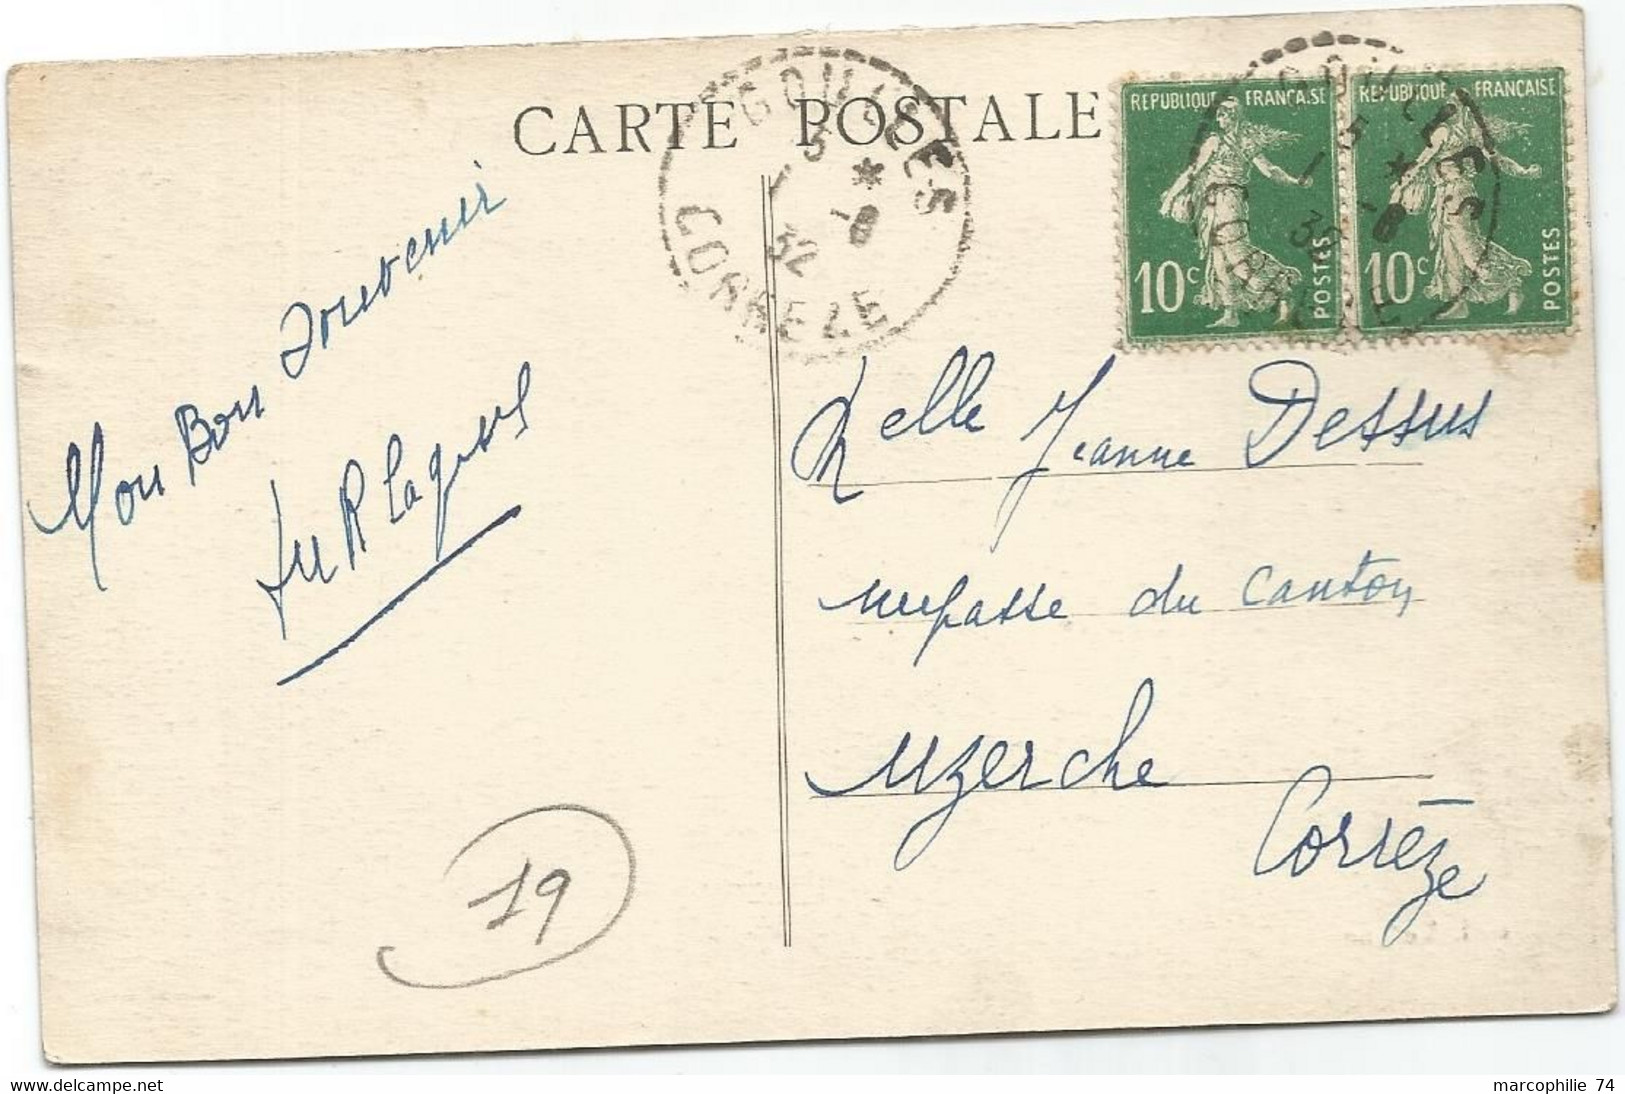 CARTE POSTALE
GOULLES
5 *
-8
32
CORREZE
REPUBLIQUE FRANÇAISE
10c
POSTES
REPUBLIQUE FRANÇAISE
10c
POSTES
GOULLES
5 *
1 -8
32
CORREZE
Mon Bon Souvenir
Melle Jeanne Dessus
impasse du Canton
Uzerche
Corrèze
19
marcophilie 74